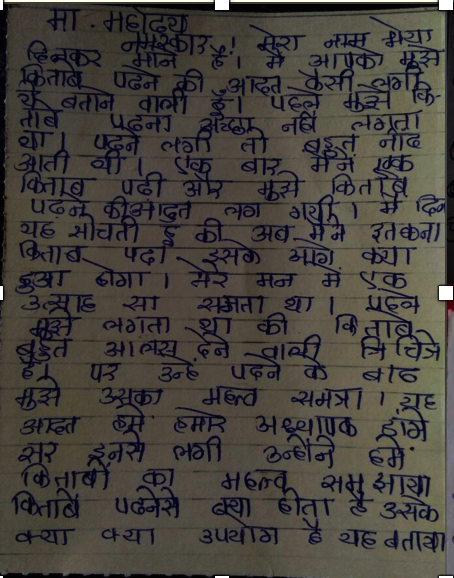 मा. महोदय
नमस्कार! मेरा नाम मेघा
दिनकर माने है। मै आपको मुझे
किताबे पढने की आदत कैसी लगी
ये बताने वाली हूँ। पहले मुझे कि-
ताबे पढना अच्छा नही लगता
था। पढने लगी तो बहुत नींद
आती थी। एक बार मैने एक
किताब पढी और मुझे किताबे
पढने की आदत लग गयी। मै दिन
यह सोचती हूँ की अब मैने इतकना
किताब पढा इसके आगे क्या
हुआ होगा। मेरे मन मे एक
उत्साह सा समता था। पहले
मुझे लगता था की किताबे
बहुत आलस देने वाली चित्रे
है। पर उन्हे पढने के बाद
मुझे उसका महत्व समझा। यह
आदत हमे हमारे अध्यापक डांगे
सर इनसे लगी उन्होंने हमे
किताबों का महत्व समझाया
किताबे पढनेसे क्या होता है उसके
क्या क्या उपयोग है यह बताया